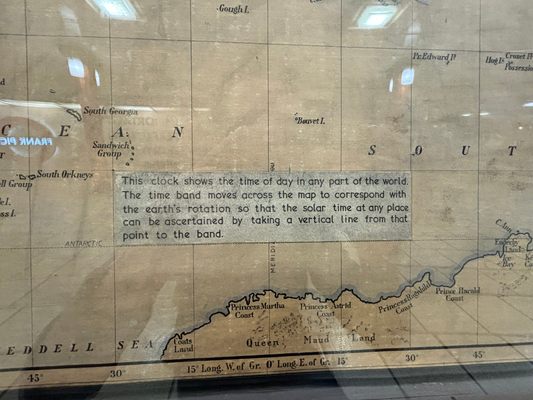 Gough I.
Pr. Edward I?
Hog Is.
Crozet
Possession
South Georgia
FRANK PIC
C E A N
Sandwich
Group
Bouvet I.
S O U T
South Orkneys
ll Group
ell I.
oss I.
This clock shows the time of day in any part of the world.
The time band moves across the map to correspond with
the earth's rotation so that the solar time at any place
can be ascertained by taking a vertical line from that
point to the band.
ANTARCTIC
MERIDI
C. Ann
Enderby
Land
Ice
Bay
Prince Harald
Coast
Princess Ragnhild
Coast
Princess Martha
Coast
Princess Astrid
Coast
Coats
Land
Queen Maud Land
EDDELL SEA
45° 30° 15° Long. W. of Gr. 0° Long. E. of Gr. 15° 30° 45°